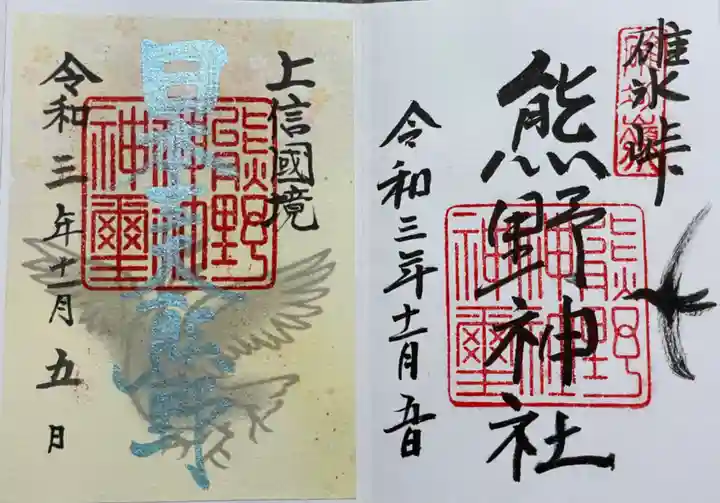 碓氷峠
熊野神社
令和三年十一月五日
上信國境
日本武尊
令和三年十一月五日
熊野
神社
神璽
熊野
神社
神璽